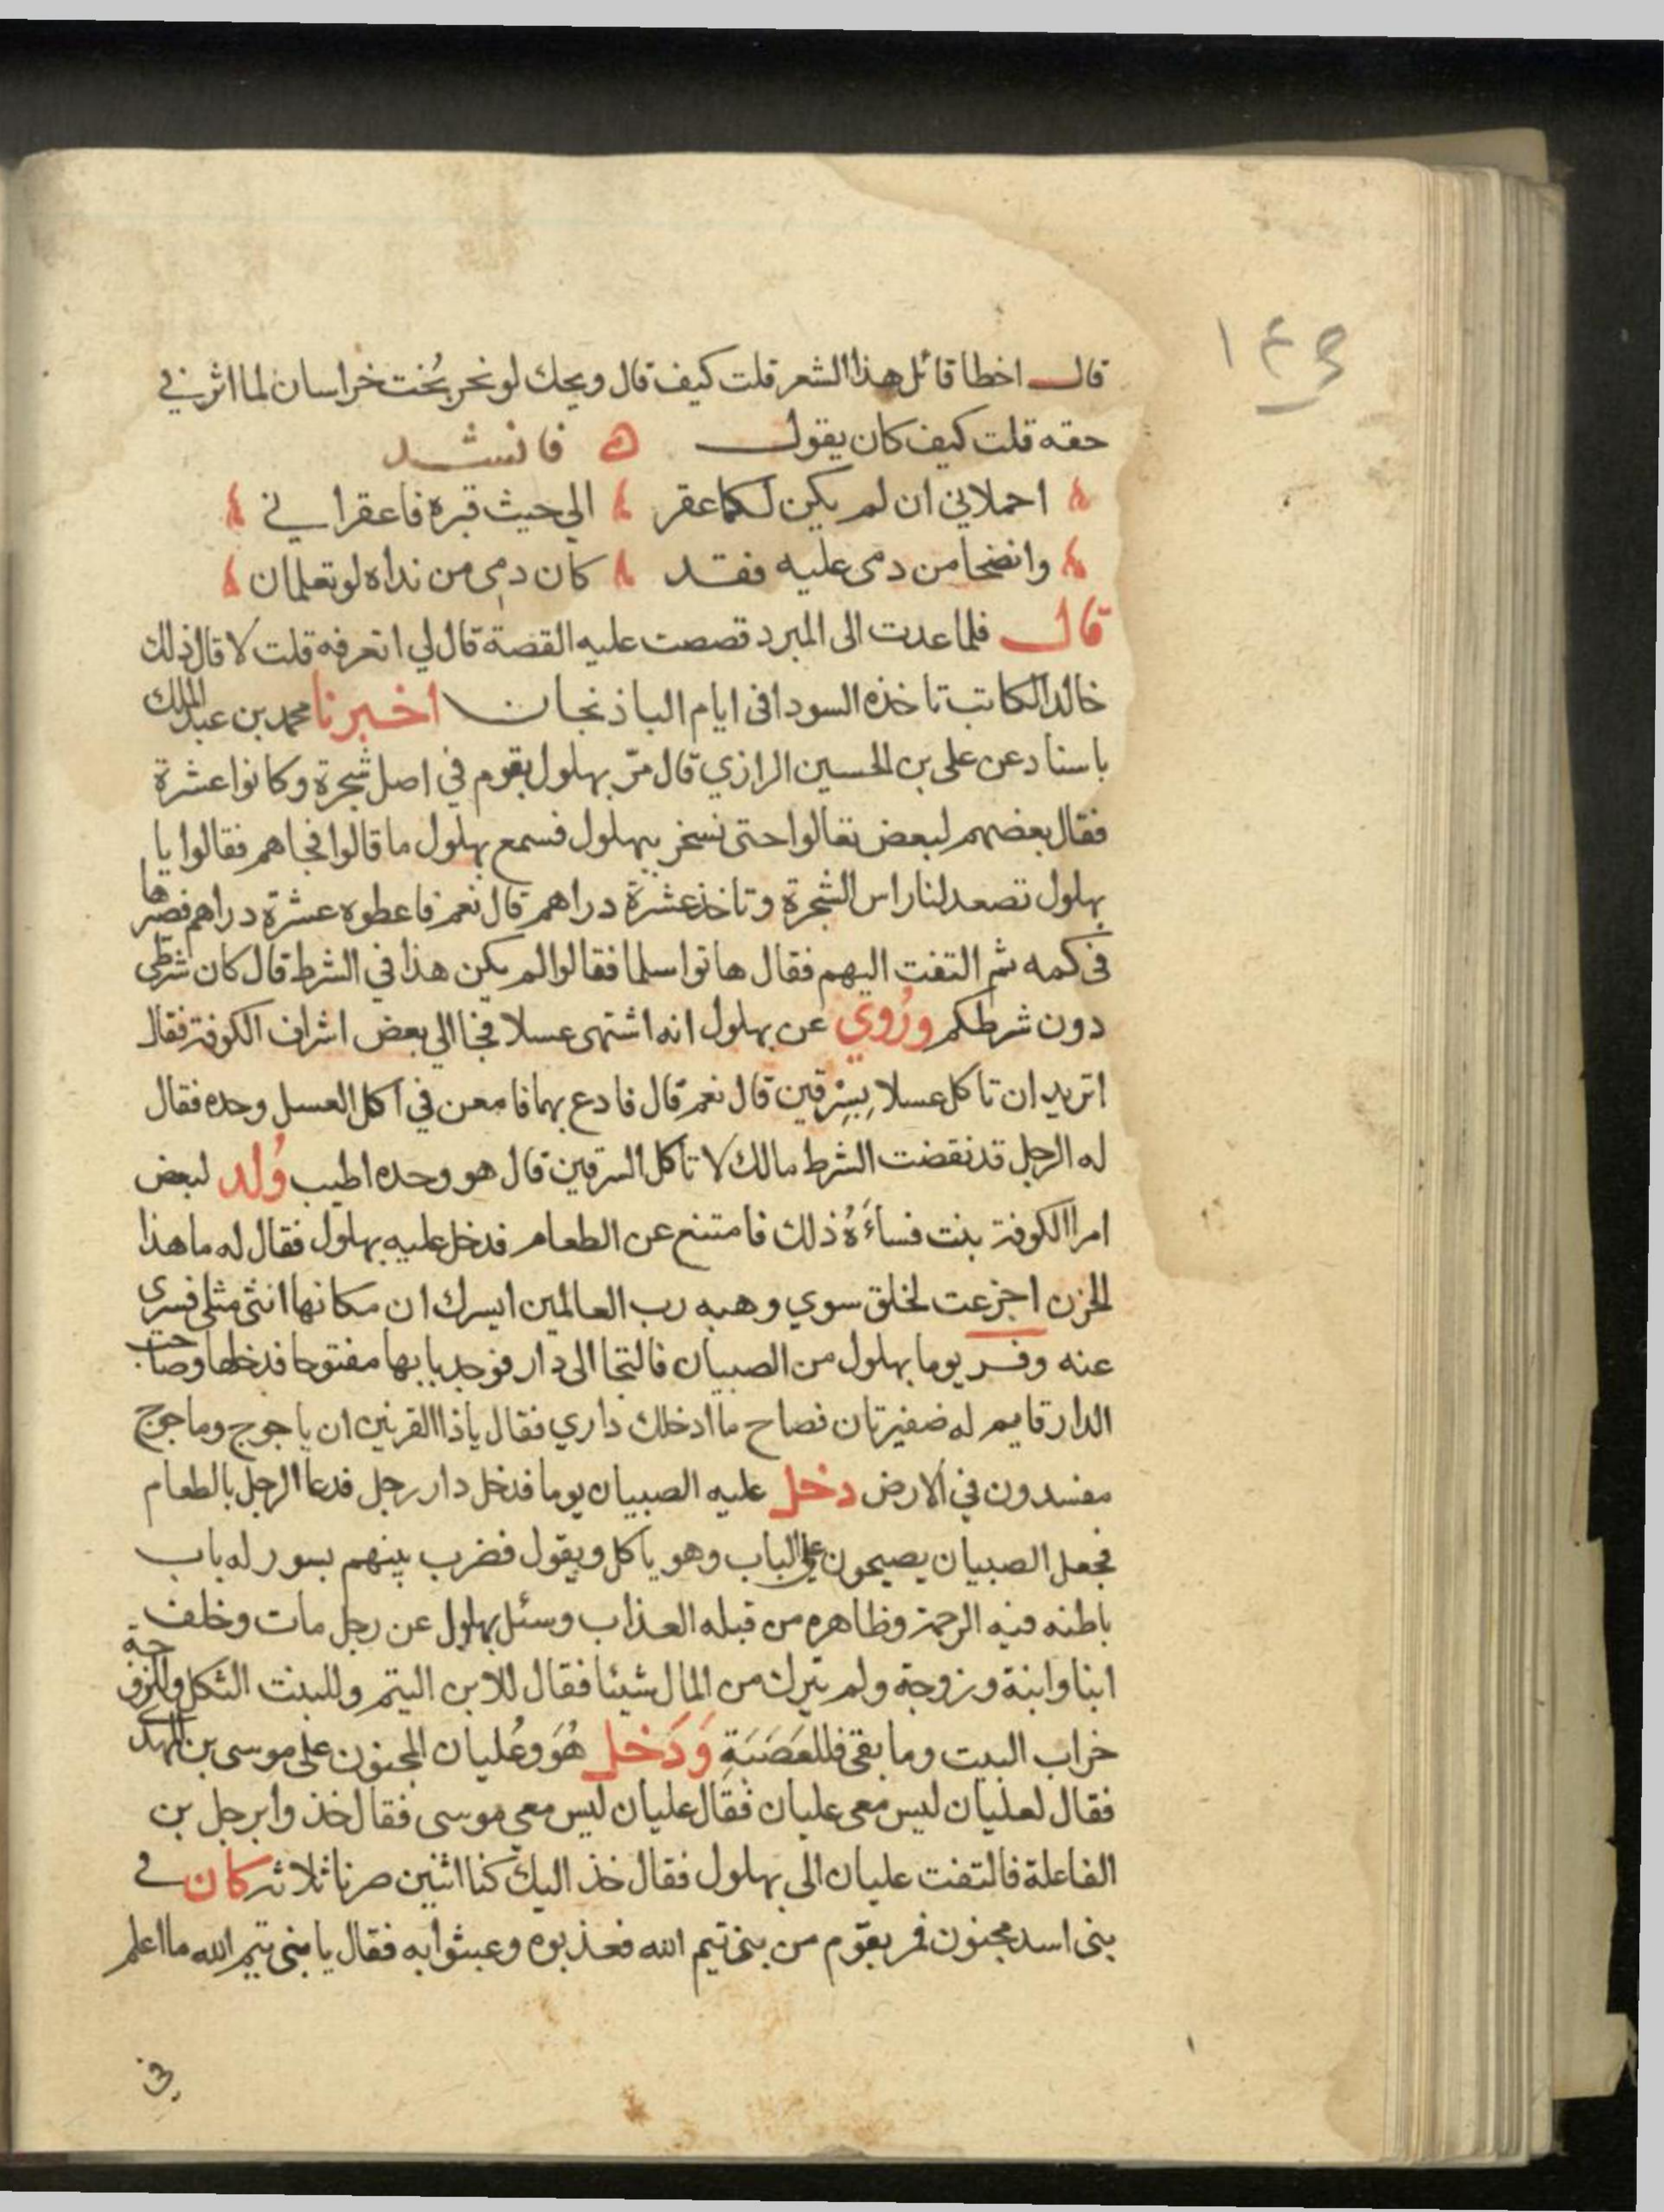 ١٤٣
قال اخطا قائل هذا الشعر قلت كيف قال ويحك لو نحر بُخت خراسان لما اثر في
حقه قلت كيف كان يقول ه فانشد
احملاني ان لم يكن لكما عقر الي حيث قبره فاعقراني
وانضحا من دمى عليه فقد كان دمي من نداه لو تعلمان
قال فلما عدت الى المبرد قصصت عليه القصة قال لي اتعرفه قلت لا قال ذلك
خالد الكاتب تاخذه السودا فى ايام الباذنجان اخبرنا محمد بن عبد الملك
باسناد عن على بن الحسين الرازي قال مرّ بهلول بقوم في اصل شجرة وكانوا عشرة
فقال بعضهم لبعض تعالوا حتى نسخر ببهلول فسمع بهلول ما قالوا فجاهم فقالوا يا
بهلول تصعد لنا راس الشجرة وتاخذ عشرة دراهم قال نعم فاعطوه عشرة دراهم فصرها
فى كمه ثم التفت اليهم فقال هاتوا سلما فقالوا لم يكن هذا في الشرط قال كان شرطى
دون شرطكم ورُوي عن بهلول انه اشتهى عسلا فجا الي بعض اشراف الكوفة فقال
اتريد ان تاكل عسلا بِسِرْقين قال نعم قال فادع بهما فامعن في اكل العسل وحده فقال
له الرجل قد نقضت الشرط مالك لا تاكل السرقين قال هو وحده اطيب وُلد لبعض
امرا الكوفة بنت فساءَهُ ذلك فامتنع عن الطعام فدخل عليه بهلول فقال له ما هذا
الحزن اجزعت لخلق سوي وهبه رب العالمين ايسرك ان مكانها انثى مثلى فسرى
عنه وفر يوما بهلول من الصبيان فالتجا الى دار فوجد بابها مفتوحا فدخلها وصاحب
الدار قايم له ضفيرتان فصاح ما ادخلك داري فقال ياذا القرنين ان ياجوج وماجوج
مفسدون في الارض دخل عليه الصبيان يوما فدخل دار رجل فدعا الرجل بالطعام
فجعل الصبيان يصيحون علي الباب وهو ياكل ويقول فضرب بينهم بسور له باب
باطنه فيه الرحمة وظاهره من قبله العذاب وسئل بهلول عن رجل مات وخلف
ابنا وابنة وزوجة ولم يترك من المال شيئا فقال للابن اليتم وللبنت الثكل وللزوجة
خراب البيت وما بقى فللعَصَبَةِ وَدَخل هُوَ وعُليان المجنون على موسى بن المهدى
فقال لعليان ليس معى عليان فقال عليان ليس معي موسى فقال خذوا برجل بن
الفاعلة فالتفت عليان الى بهلول فقال خذ اليك كنا اثنين صرنا ثلاثة كان في
بنى اسد مجنون فمر بقوم من بنى تيم الله فعذبوه وعبثوا به فقال يا بنى تيم الله ما اعلم
في